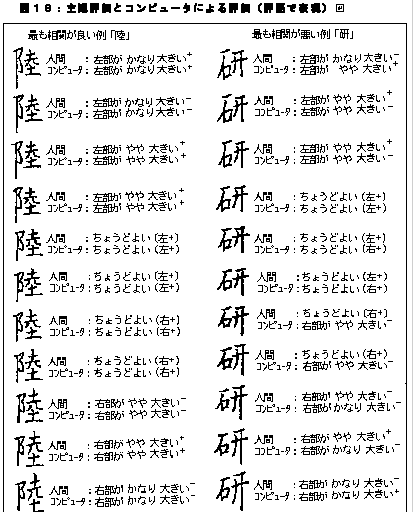 図18：主観評価とコンピュータによる評価（評語で表現）
最も相関が良い例「陸」
陸 人間 ：左部が かなり 大きい+
コンピュータ：左部が かなり 大きい+
陸 人間 ：左部が かなり 大きい－
コンピュータ：左部が かなり 大きい－
陸 人間 ：左部が やや 大きい+
コンピュータ：左部が やや 大きい+
陸 人間 ：左部が やや 大きい+
コンピュータ：左部が やや 大きい+
陸 人間 ：ちょうどよい（左+）
コンピュータ：ちょうどよい（左+）
陸 人間 ：ちょうどよい（左+）
コンピュータ：ちょうどよい（左+）
陸 人間 ：ちょうどよい（右+）
コンピュータ：ちょうどよい（右+）
陸 人間 ：ちょうどよい（右+）
コンピュータ：ちょうどよい（右+）
陸 人間 ：右部が やや 大きい－
コンピュータ：右部が やや 大きい－
陸 人間 ：右部が やや 大きい+
コンピュータ：右部が やや 大きい+
陸 人間 ：右部が かなり 大きい－
コンピュータ：右部が かなり 大きい－
最も相関が悪い例「研」
研 人間 ：左部が かなり 大きい－
コンピュータ：左部が やや 大きい+
研 人間 ：左部が やや 大きい+
コンピュータ：左部が やや 大きい－
研 人間 ：左部が やや 大きい+
コンピュータ：左部が やや 大きい－
研 人間 ：ちょうどよい（左+）
コンピュータ：ちょうどよい（左+）
研 人間 ：ちょうどよい（左+）
コンピュータ：ちょうどよい（右+）
研 人間 ：ちょうどよい（左+）
コンピュータ：ちょうどよい（右+）
研 人間 ：ちょうどよい（右+）
コンピュータ：右部が やや 大きい－
研 人間 ：ちょうどよい（右+）
コンピュータ：右部が やや 大きい－
研 人間 ：右部が やや 大きい－
コンピュータ：右部が かなり 大きい－
研 人間 ：右部が やや 大きい+
コンピュータ：右部が かなり 大きい－
研 人間 ：右部が かなり 大きい－
コンピュータ：右部が かなり 大きい+